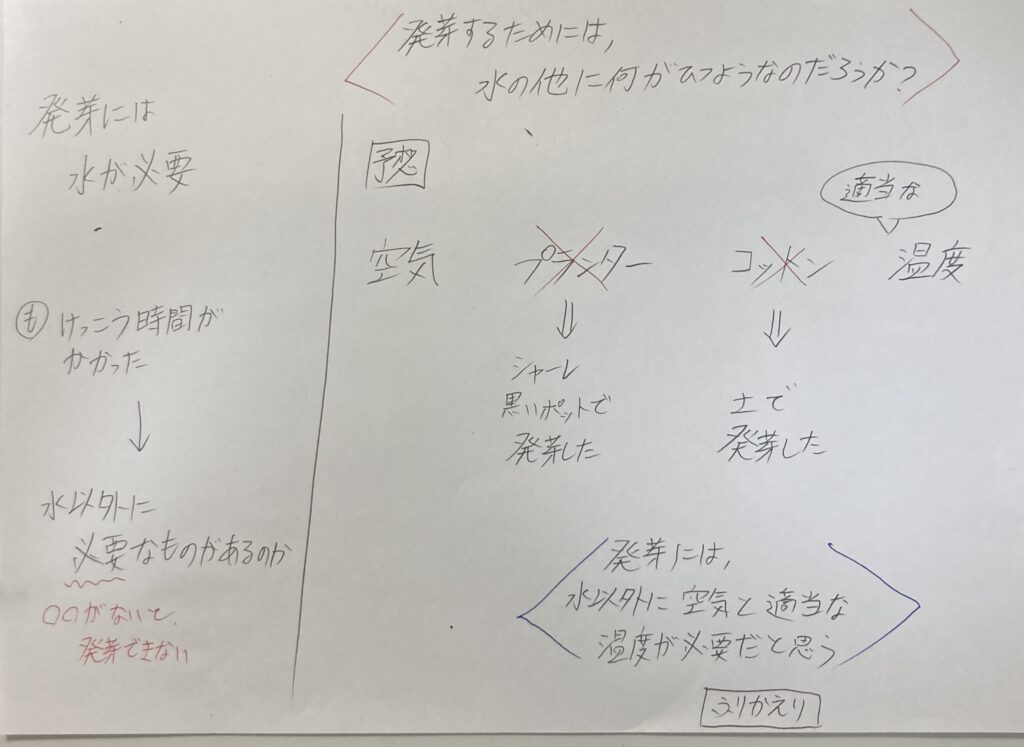 発芽するためには、
水の他に何がひつようなのだろうか?
発芽には
水が必要
も けっこう時間が
かかった
水以外に
必要なものがあるのか
○○がないと、
発芽できない
予想
空気
プランター
シャーレ
黒いポットで
発芽した
コットン
土で
発芽した
適当な
温度
発芽には、
水以外に空気と適当な
温度が必要だと思う
ふりかえり